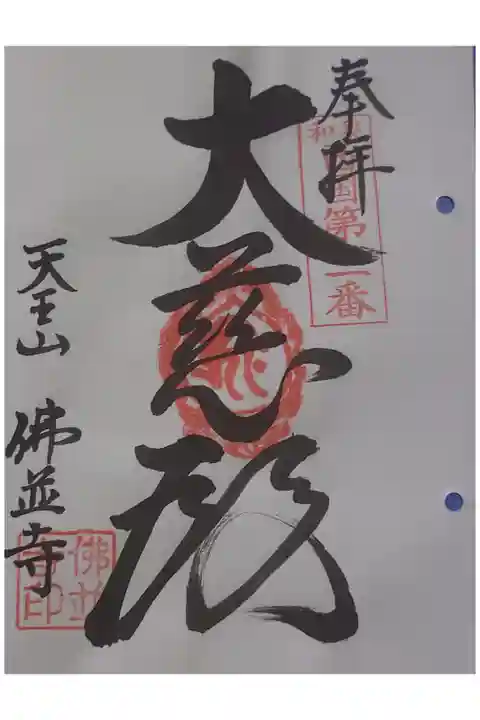 奉拝
和
国第一番
大慈殿
天王山 佛並寺
佛並
寺印